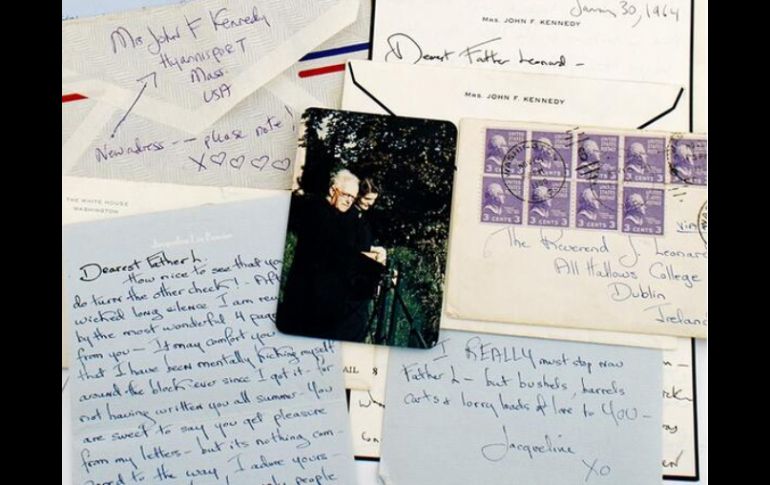 Mrs John F Kennedy
Hyannisport
Mass.
USA
New adress — please note!
X♡♡♡♡
THE WHITE HOUSE
WASHINGTON
January 30, 1964
MRS. JOHN F. KENNEDY
Dearest Father Leonard —
MRS. JOHN F. KENNEDY
UNITED STATES
3 CENTS 3
WASHINGTON
The Reverend J. Leonard
All Hallows College
Dublin
Ireland
Dearest Father L.
How nice to see that you
do turn the other cheek!
wicked long silence. I am
by the most wonderful 4 page
from you — It may comfort you
that I have been mentally kicking myself
around the block ever since I got it — for
not having written you all summer — You
are sweet to say you get pleasure
from my letters — but its nothing com-
pared to the way I adore yours —
people
I REALLY must stop now
Father L — but bushels, barrels
carts & lorry loads of love to YOU —
Jacqueline
XO